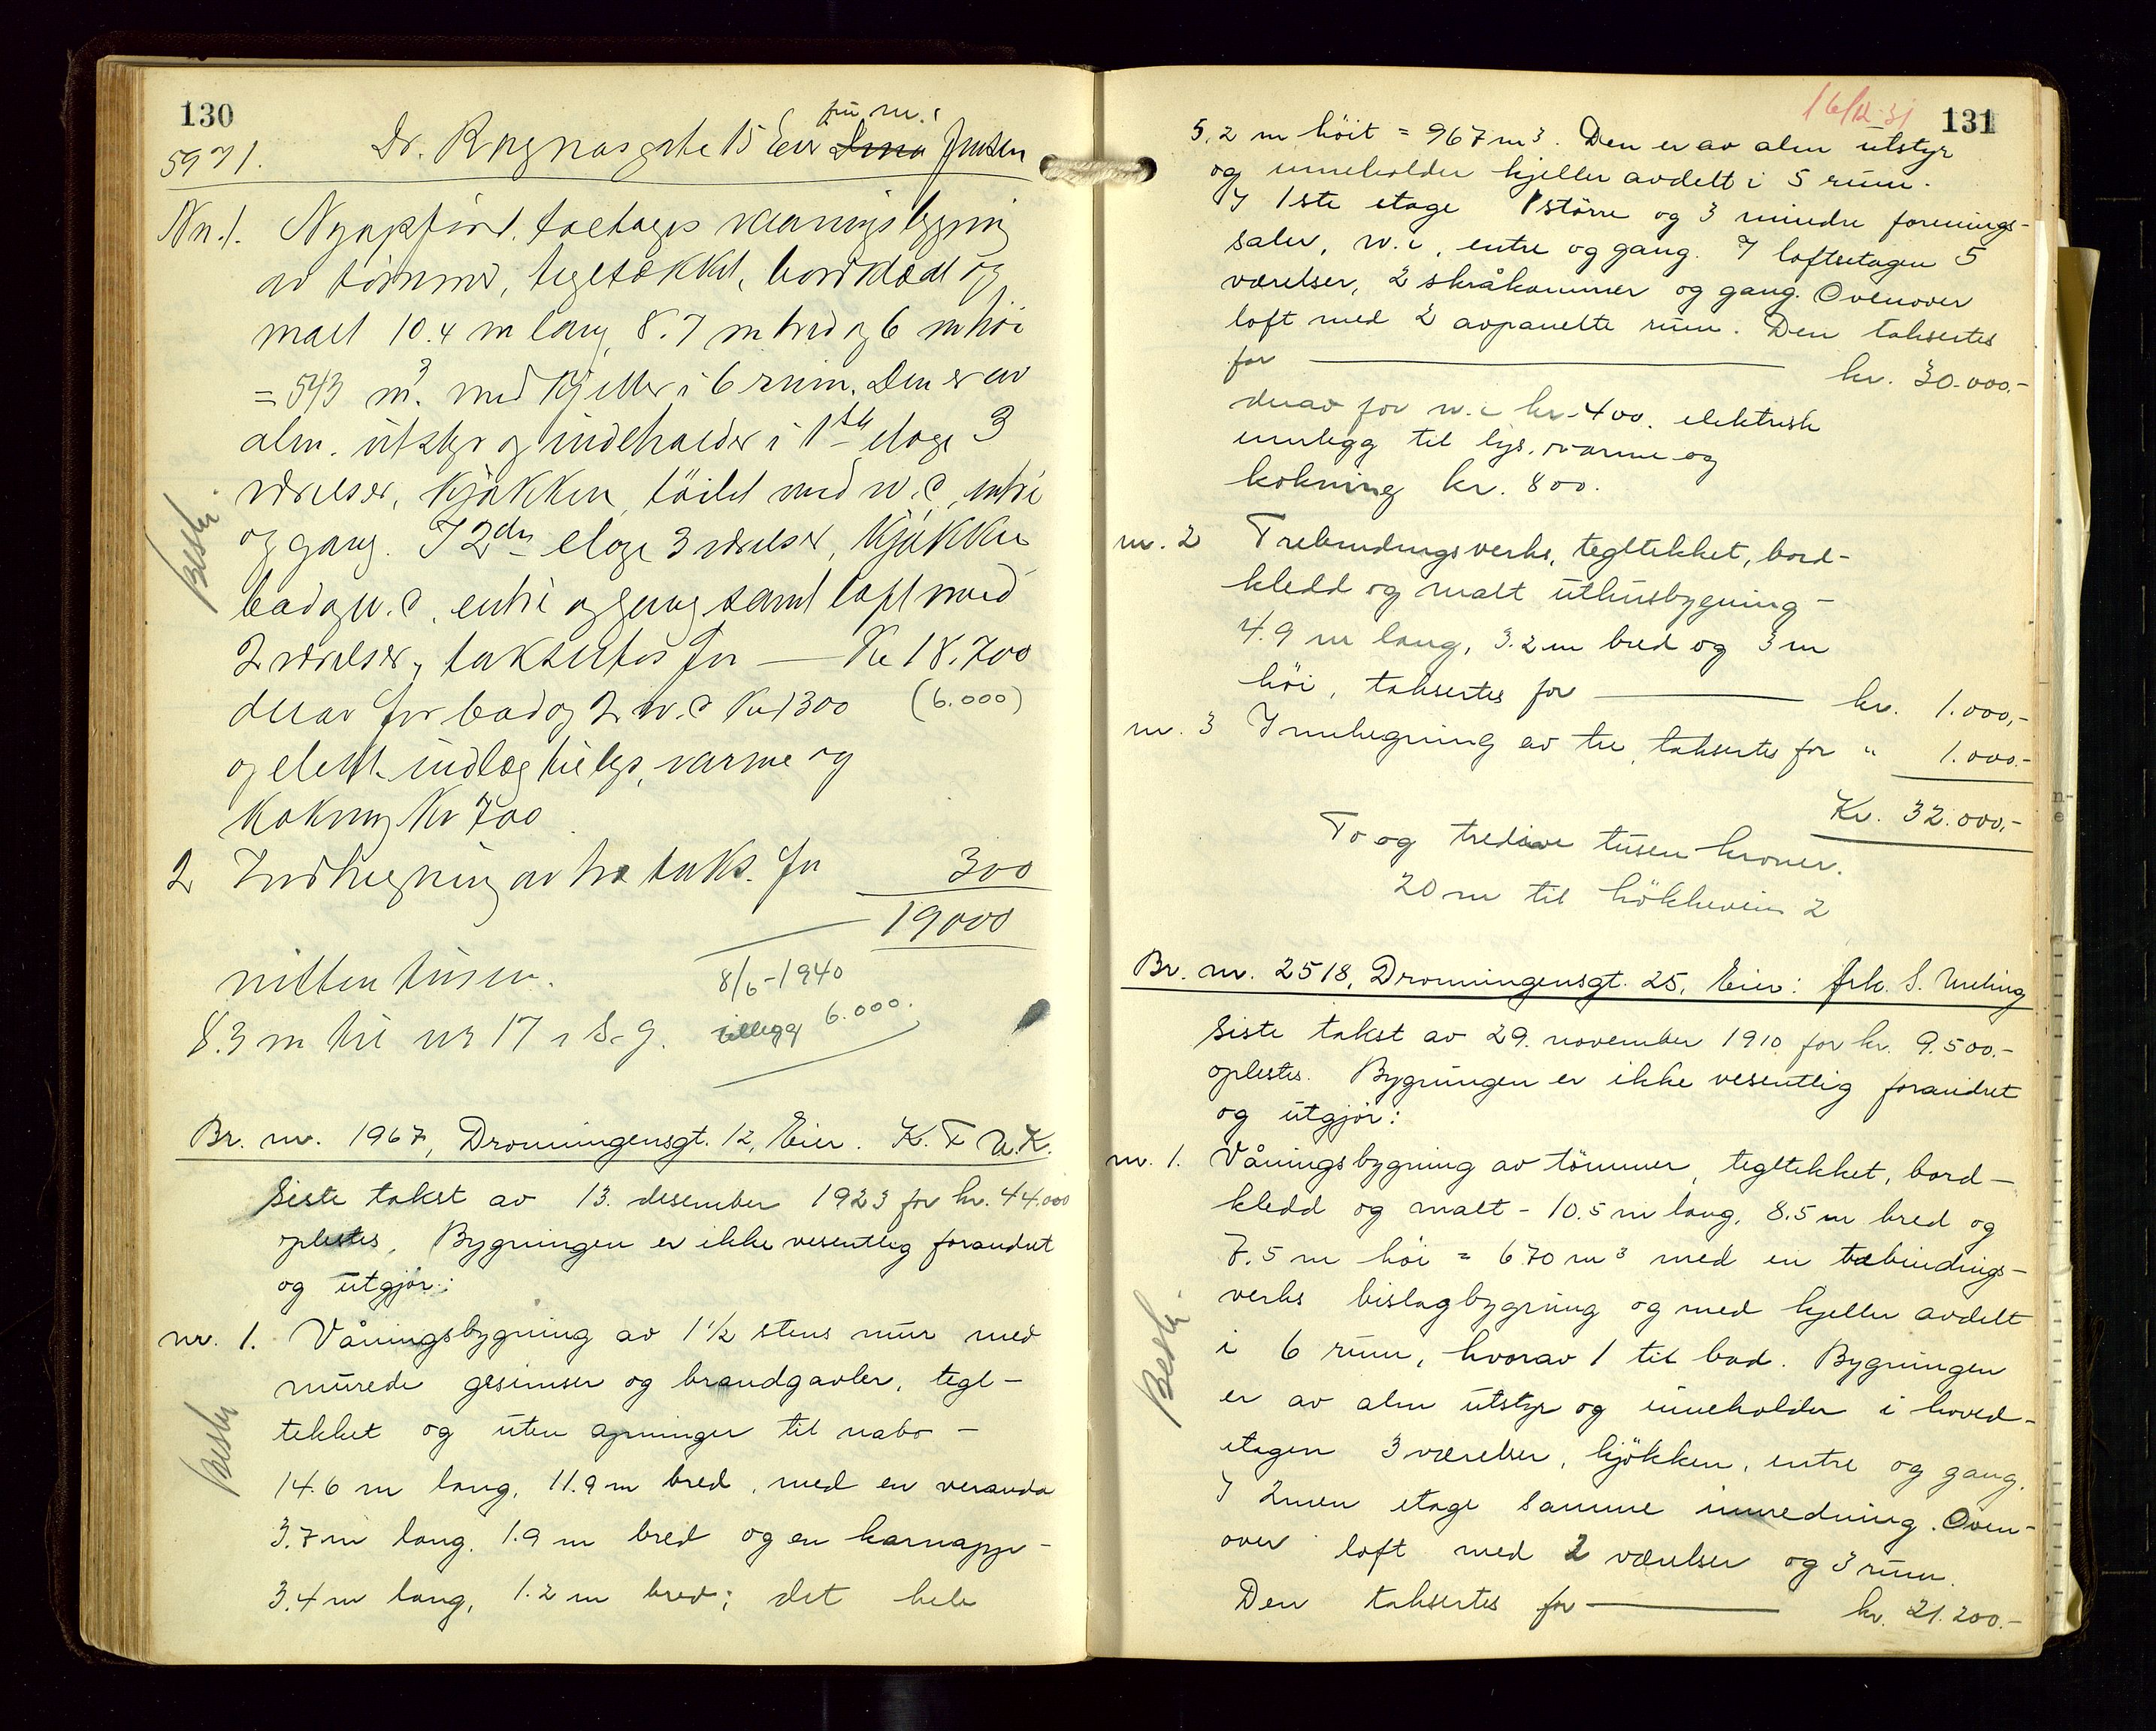 130
5971. Dr. Ragnasgate 15 Eier ~~Dina~~ Jensen
Nr. 1. Nyopført, toetages vaaningsbygning
av tømmer, teglstækket, bordklædt og
malt 10.4 m lang, 8.7 m bred og 6 m høi
= 543 m³. med kjelder i 6 rum. Den er av
alm. utstyr og indeholder i 1ste etage 3
værelser, kjøkken, toilet med w.c, entre
og gang. I 2den etage 3 værelser, kjøkken
bad og w.c, entre og gang samt loft med
2 værelser, taksertes for — Kr 18.700
derav for bad og 2 w.c Kr 1300 (6.000)
og elektr. indlæg til lys, varme og
kokning Kr 700
Beskr.
2 Indhegning av træ taks. for 300
19000
nitten tusen.
8/6-1940
8.3 m til nr 17 i s. g.
tillegg 6.000.
Br. nr. 1967, Dronningensgt. 12, Eier. K. F. U. K.
Siste takst av 13. desember 1923 for kr. 44.000
oplestes. Bygningen er ikke vesentlig forandret
og utgjør:
nr. 1. Våningsbygning av 1½ stens mur med
murede gesimser og brandgavler, tegl-
tekket og uten apninger til nabo -
14.6 m lang, 11.9 m bred, med en veranda
3.7 m lang, 1.9 m bred og en karnapp -
3.4 m lang, 1.2 m bred; det hele
Beskr
16/12-31
131
5.2 m höit = 967 m³. Den er av alm utstyr
og inneholder kjeller avdelt i 5 rum.
I 1ste etage 1 større og 3 mindre forenings-
saler, w.c, entre og gang. I loftsetagen 5
værelser, 2 skråkammer og gang. Ovenover
loft med 2 avpanelte rum. Den taksertes
for kr. 30.000.-
derav for w.c kr. 400. elektrisk
innlegg til lys, varme og
kokning kr. 800.
nr. 2 Trebindingsverks, tegltekket, bord-
kledd og malt uthusbygning -
4.9 m lang, 3.2 m bred og 3 m
höi, taksertes for kr. 1.000,-
nr. 3 Innhegning av tre, taksertes for " 1.000.-
Kr. 32.000,-
To og tredive tusen kroner.
20 m til hökkeveien 2
Br. nr. 2518, Dronningensgt. 25, Eier: frk. S. Meling
Siste takst av 29. november 1910 for kr. 9.500.-
oplestes. Bygningen er ikke vesentlig forandret
og utgjør:
nr. 1. Våningsbygning av tömmer, tegltekket, bord-
kledd og malt - 10.5 m lang, 8.5 m bred og
7.5 m höi = 670 m³ med en trebindings-
verks bislagbygning og med kjeller avdelt
i 6 rum, hvorav 1 til bad. Bygningen
er av alm utstyr og inneholder i hoved-
etagen 3 værelser, kjökken, entre og gang.
I 2nen etage samme innredning. Oven-
over loft med 2 værelser og 3 rum.
Den taksertes for kr. 21.200.-
Beskr.